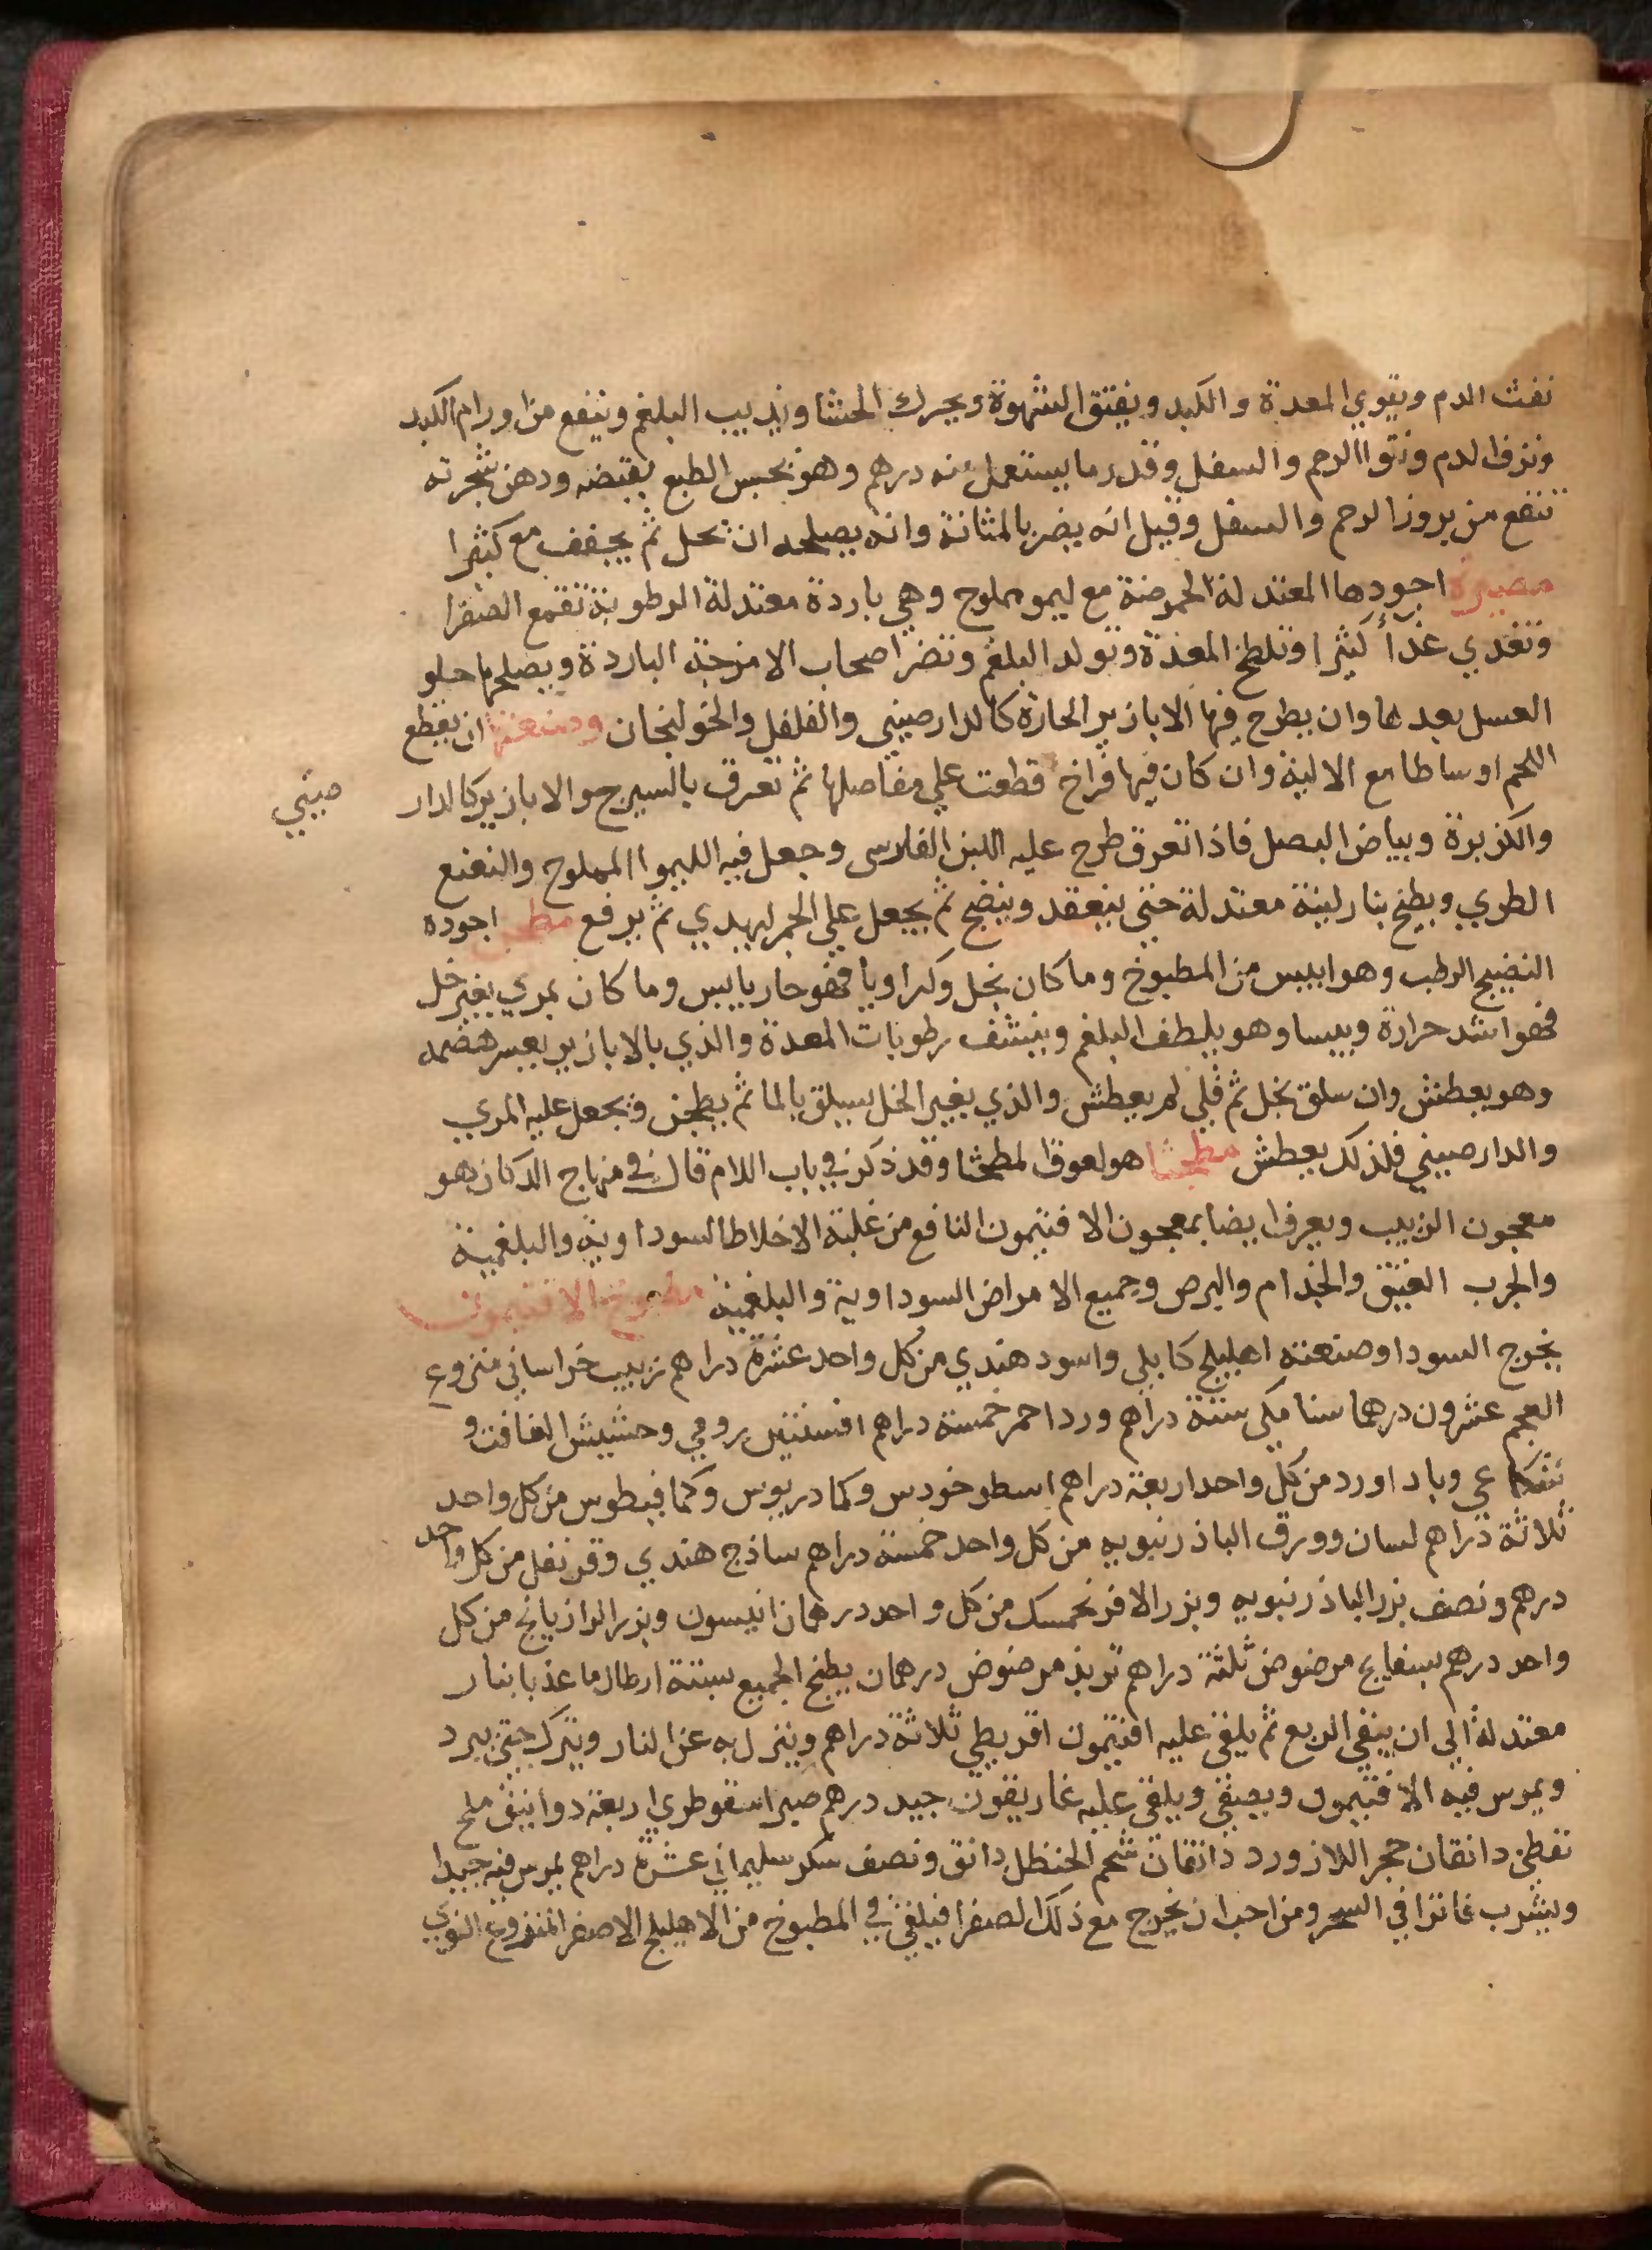 نفث الدم ويقوي المعدة والكبد ويفتق الشهوة ويحرك الحشا ويذيب البلغم وينفع من اورام الكبد
ونزف الدم ونتوا الرحم والسفل وقدر ما يستعمل منه درهم وهو يحبس الطبع بقبضه ودهن شجرته
تنفع من بروز الرحم والسفل وقيل انه يضر بالمثانة وانه يصلحه ان تحل ثم يجفف مع كثيرا
مضيرة اجودها المعتدلة الحموضة مع ليمو مملوح وهي باردة معتدلة الرطوبة تقمع الصفرا
وتغدي غذأ كثيرا وتلطخ المعدة وتولد البلغم وتضر اصحاب الامزجة الباردة ويصلحها حلو
العسل بعدها وان يطرح فيها الابازير الحارة كالدارصيني والفلفل والخولنجان وصنعتها ان يقطع
اللحم اوساطا مع الالية وان كان فيها فراخ قطعت علي مفاصلها ثم تعرق بالسيرج والابازير كالدار صيني
والكزبرة وبياض البصل فاذا تعرق طرح عليه اللبن الفارسى وجعل فيه الليموا المملوح والنعنع
الطري ويطبخ بنار لينة معتدلة حتى ينعقد وينضج ثم يجعل علي الجمر ليهدي ثم يرفع مطجن اجوده
النضيج الرطب وهو ايبس من المطبوخ وما كان بخل وكراويا فهو حار يابس وما كان بمري بغير خل
فهو اشد حرارة ويبسا وهو يلطف البلغم وينشف رطوبات المعدة والذي بالابازير يعسر هضمه
وهو يعطش وان سلق بخل ثم قلي لم يعطش والذي بغير الخل يسلق بالما ثم يطجن ويجعل عليه المري
والدارصيني فلذلك يعطش مطمحشا هو لعوق المطمحشا وقد ذكر في باب اللام قال في منهاج الدكان هو
معجون الزبيب ويعرف ايضا بمعجون الافتيمون النافع من غلبة الاخلاط السوداوية والبلغمية
والجرب العتيق والجذام والبرص وجميع الامراض السوداوية والبلغمية مطبوخ الافتيمون
يخرج السودا وصنعته اهليلج كابلي واسود هندي من كل واحد عشرة دراهم زبيب خراساني منزوع
العجم عشرون درهما سنا مكي ستة دراهم ورد احمر خمسة دراهم افسنتين رومي وحشيش الغافت و
شكاعي وباداورد من كل واحد اربعة دراهم اسطوخودس وكمادريوس وكمافيطوس من كل واحد
ثلاثة دراهم لسان وورق الباذرنبويه من كل واحد خمسة دراهم ساذج هندي وقرنفل من كل واحد
درهم ونصف بزر الباذرنبويه وبزر الافرنجمسك من كل واحد درهمان انيسون وبزر الرازيانج من كل
واحد درهم بسفايج مرضوض ثلثة دراهم تربذ مرضوض درهمان يطبخ الجميع بستة ارطال ما عذبا بنار
معتدلة الي ان يبقي الربع ثم يلقي عليه افتيمون اقريطي ثلاثة دراهم وينزل به عن النار ويترك حتى يبرد
ويمرس فيه الافتيمون ويصفي ويلقي عليه غاريقون جيد درهم صبر اسقوطري اربعة دوانيق ملح
نفطي دانقان حجر اللازورد دانقان شحم الحنظل دانق ونصف سكر سليماني عشرة دراهم يمرس فيه جيدا
ويشرب فاترا في السحر ومن احب ان يخرج مع ذلك الصفرا فيلقي في المطبوخ من الاهليلج الاصفر المنزوع النوي